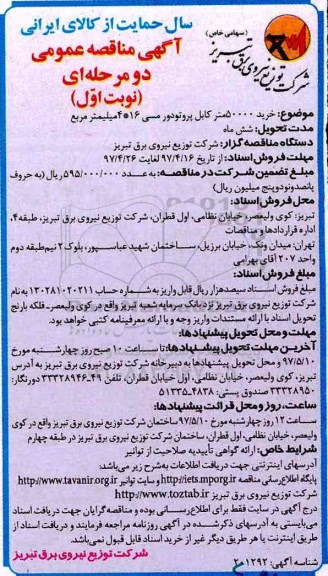 سال حمایت از کالای ایرانی
(سهامی خاص)
شرکت توزیع نیروی برق تبریز
آگهی مناقصه عمومی
دو مرحله‌ای
(نوبت اوّل)
موضوع: خرید ۵۰۰۰۰متر کابل پروتودور مسی ۱۶*۴میلیمتر مربع
مدت تحویل: شش ماه
دستگاه مناقصه گزار: شرکت توزیع نیروی برق تبریز
مهلت فروش اسناد: از تاریخ ۹۷/۴/۱۶ لغایت ۹۷/۴/۲۶
مبلغ تضمین شرکت در مناقصه: به عدد ۵۹۵/۰۰۰/۰۰۰ ریال (به حروف
پانصدونودوپنج میلیون ریال)
محل فروش اسناد:
تبریز: کوی ولیعصر، خیابان نظامی، اول قطران، شرکت توزیع نیروی برق تبریز، طبقه۴،
اداره قراردادها و مناقصات
تهران: میدان ونک، خیابان برزیل، ساختمان شهید عباسپور، بلوک ۲ نیم‌طبقه دوم
واحد ۲۰۷ آقای بهرامی
مبلغ فروش اسناد:
مبلغ فروش اسناد سیصدهزار ریال قابل واریز به شماره حساب ۱۳۰۲۸۱۰۲۰۲۱۱ به نام
شرکت توزیع نیروی برق تبریز نزد بانک سرمایه شعبه تبریز واقع در کوی ولیعصر- فلکه بارنج
تحویل اسناد با ارائه مستندات واریز وجه و با ارائه معرفینامه کتبی خواهد بود.
مهلت و محل تحویل پیشنهادها:
آخرین مهلت تحویل پیشنهادها: تا ساعت ۱۰ صبح روز چهارشنبه مورخ
۹۷/۵/۱۰ و محل تحویل پیشنهادها به دبیرخانه شرکت توزیع نیروی برق تبریز به آدرس
تبریز، کوی ولیعصر، خیابان نظامی، اول خیابان قطران، تلفن ۴۹-۳۳۳۲۸۹۴۶ دورنگار:
۳۳۳۲۸۹۵۰ صندوق پستی: ۴۸۳۸-۵۱۳۳۵
ساعت، روز و محل قرائت پیشنهادها:
ساعت ۱۲ روز چهارشنبه مورخ ۹۷/۵/۱۰ ساختمان شرکت توزیع نیروی برق تبریز واقع در کوی
ولیعصر، خیابان نظامی، اول قطران، ساختمان شرکت توزیع نیروی برق تبریز در طبقه چهارم
شرایط خاص: ارائه گواهی تأییدیه صلاحیت از توانیر
آدرسهای اینترنتی جهت دریافت اطلاعات به شرح زیر می‌باشد:
پایگاه اطلاع رسانی مناقصه http://iets.mporg.ir و سایت توانیر http://www.tavanir.org.ir
شرکت توزیع نیروی برق تبریز http://www.toztab.ir
درج آگهی در سایت فقط برای اطلاع رسانی بوده و مناقصه گزاران جهت دریافت اسناد
می‌بایستی به آدرسهای ذکر شده در آگهی روزنامه مراجعه فرمایند و دریافت اسناد از
طریق اینترنت یا هر طریق دیگر غیر از خرید اسناد قابل قبول نمی‌باشد.
شناسه آگهی: ۲۰۱۲۹۲
شرکت توزیع نیروی برق تبریز